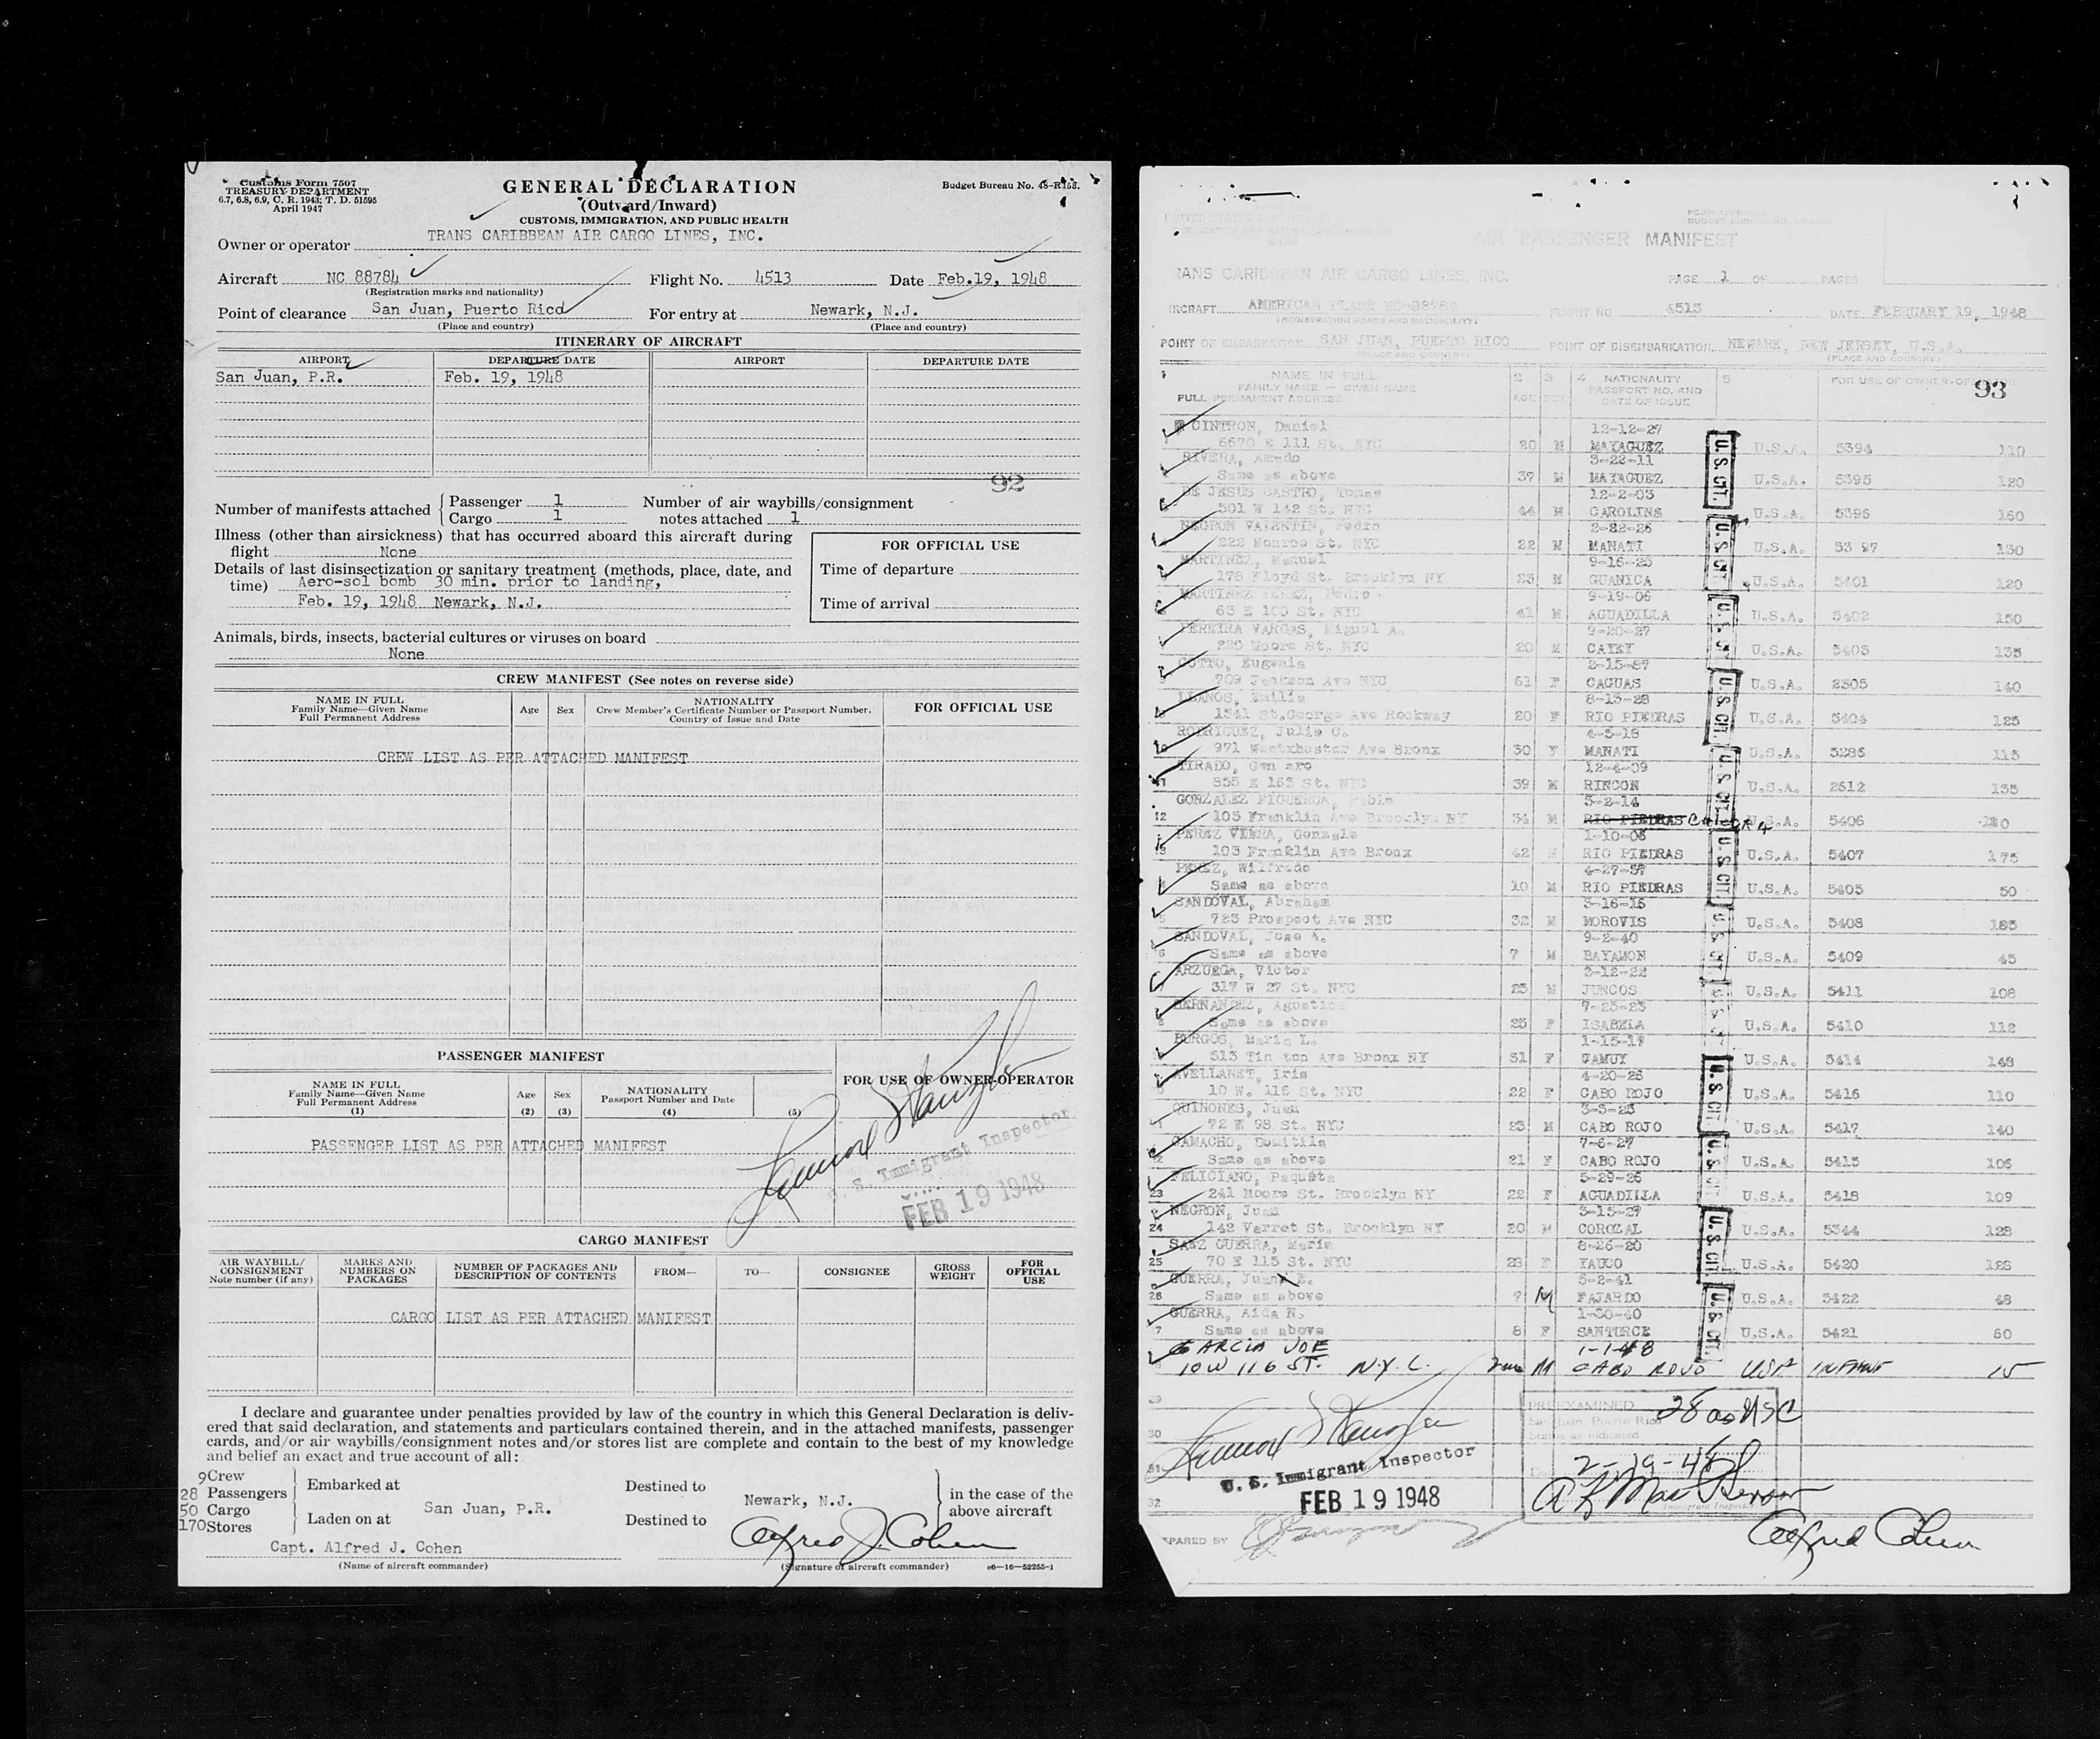 Customs Form 7507
TREASURY DEPARTMENT
6.7, 6.8, 6.9, C. R. 1943; T. D. 51595
April 1947
GENERAL DECLARATION
(Outward/Inward)
CUSTOMS, IMMIGRATION, AND PUBLIC HEALTH
Budget Bureau No. 48-R153.
Owner or operator TRANS CARIBBEAN AIR CARGO LINES, INC.
Aircraft NC 88784 Flight No. 4513 Date Feb.19, 1948
(Registration marks and nationality)
Point of clearance San Juan, Puerto Rico For entry at Newark, N.J.
(Place and country) (Place and country)
ITINERARY OF AIRCRAFT
AIRPORT DEPARTURE DATE AIRPORT DEPARTURE DATE
San Juan, P.R. Feb. 19, 1948
92
Number of manifests attached { Passenger 1 Number of air waybills/consignment
Cargo 1 notes attached 1
Illness (other than airsickness) that has occurred aboard this aircraft during
flight None
FOR OFFICIAL USE
Time of departure
Time of arrival
Details of last disinsectization or sanitary treatment (methods, place, date, and
time) Aero-sol bomb 30 min. prior to landing,
Feb. 19, 1948 Newark, N.J.
Animals, birds, insects, bacterial cultures or viruses on board
None
CREW MANIFEST (See notes on reverse side)
NAME IN FULL
Family Name—Given Name
Full Permanent Address
Age Sex
NATIONALITY
Crew Member's Certificate Number or Passport Number,
Country of Issue and Date
FOR OFFICIAL USE
CREW LIST AS PER ATTACHED MANIFEST
PASSENGER MANIFEST
FOR USE OF OWNER-OPERATOR
NAME IN FULL
Family Name—Given Name
Full Permanent Address
(1)
Age
(2)
Sex
(3)
NATIONALITY
Passport Number and Date
(4)
(5)
PASSENGER LIST AS PER ATTACHED MANIFEST
U. S. Immigrant Inspector
FEB 19 1948
CARGO MANIFEST
AIR WAYBILL/
CONSIGNMENT
Note number (if any)
MARKS AND
NUMBERS ON
PACKAGES
NUMBER OF PACKAGES AND
DESCRIPTION OF CONTENTS
FROM— TO— CONSIGNEE
GROSS
WEIGHT
FOR
OFFICIAL
USE
CARGO LIST AS PER ATTACHED MANIFEST
I declare and guarantee under penalties provided by law of the country in which this General Declaration is deliv-
ered that said declaration, and statements and particulars contained therein, and in the attached manifests, passenger
cards, and/or air waybills/consignment notes and/or stores list are complete and contain to the best of my knowledge
and belief an exact and true account of all:
9 Crew
28 Passengers
50 Cargo
170 Stores
Embarked at
Laden on at
San Juan, P.R.
Destined to
Destined to
Newark, N.J.
in the case of the
above aircraft
Capt. Alfred J. Cohen
Alfred J. Cohen
(Name of aircraft commander) (Signature of aircraft commander) c6—16—52255-1
AIR PASSENGER MANIFEST
TRANS CARIBBEAN AIR CARGO LINES, INC. PAGE 1 OF PAGES
AIRCRAFT AMERICAN PLANE NC-88784 FLIGHT NO 4513 DATE FEBRUARY 19, 1948
(REGISTRATION MARKS AND NATIONALITY)
POINT OF EMBARKATION SAN JUAN, PUERTO RICO POINT OF DISEMBARKATION NEWARK, NEW JERSEY, U.S.A.
(PLACE AND COUNTRY) (PLACE AND COUNTRY)
1 NAME IN FULL 2 3 4 NATIONALITY 5 FOR USE OF OWNER-OPE
FAMILY NAME — GIVEN NAME PASSPORT NO. AND 93
FULL PERMANENT ADDRESS AGE SEX DATE OF ISSUE
CINTRON, Daniel 12-12-27
6670 E 111 St. NYC 20 M MAYAGUEZ U.S.A. 5394 110
RIVERA, Amado 3-22-11
Same as above 37 M MAYAGUEZ U.S.A. 5395 120
DE JESUS CASTRO, Tomas 12-2-03
501 W 142 St. NYC 44 M CAROLINS U.S.A. 5396 160
NEGRON VALENTIN, Pedro 2-22-26
222 Monroe St. NYC 22 M MANATI U.S.A. 53 97 130
MARTINEZ, Manuel 9-16-25
178 Floyd St. Brooklyn NY M GUANICA U.S.A. 5401 120
MARTINEZ PEREZ, Pedro 9-19-06
63 E 100 St. NYC 41 M AGUADILLA U.S.A. 5402 150
PEREIRA VARGAS, Miguel A. 9-20-27
220 Moore St. NYC 20 M CAYEY U.S.A. 5403 135
COTTO, Eugenia 2-15-87
709 Jackson Ave NYC 61 F CAGUAS U.S.A. 2305 140
LLANOS, Emilia 8-13-28
1341 St.George Ave Rockway 20 F RIO PIEDRAS U.S.A. 5404 125
RODRIGUEZ, Julie C. 4-5-18
10 971 Westchester Ave Bronx 30 F MANATI U.S.A. 5286 115
TIRADO, Gen aro 12-4-09
11 855 E 163 St. NYC 39 M RINCON U.S.A. 2612 135
GONZALEZ FIGUEROA, Pablo 3-2-14
12 103 Franklin Ave Brooklyn NY 34 M RIO PIEDRAS U.S.A. 5406
PEREZ VIERA, Gonzalo 1-10-06
13 103 Franklin Ave Bronx 42 M RIO PIEDRAS U.S.A. 5407 175
PEREZ, Wilfredo 4-27-37
Same as above 10 M RIO PIEDRAS U.S.A. 5405 50
SANDOVAL, Abraham 3-16-16
723 Prospect Ave NYC 32 M MOROVIS U.S.A. 5408 185
SANDOVAL, Jose A. 9-2-40
Same as above 7 M BAYAMON U.S.A. 5409 45
ARZUEGA, Victor 2-12-22
317 W 27 St. NYC 25 M JUNCOS U.S.A. 5411 108
HERNANDEZ, Agustina 7-23-23
Same as above 25 F ISABELA U.S.A. 5410 112
BURGOS, Maria L. 1-15-17
513 Tin ton Ave Bronx NY 31 F CAMUY U.S.A. 5414 148
AVELLANET, Iris 4-20-26
10 W. 116 St. NYC 22 F CABO ROJO U.S.A. 5416 110
QUINONES, Juan 3-3-25
72 E 98 St. NYC 23 M CABO ROJO U.S.A. 5417 140
CAMACHO, Domitila 7-6-27
Same as above 21 F CABO ROJO U.S.A. 5415 106
FELICIANO, Paquita 5-29-26
23 241 Moore St. Brooklyn NY 22 F AGUADILLA U.S.A. 5418 109
NEGRON, Juan 3-15-27
24 142 Varret St. Brooklyn NY 20 M COROZAL U.S.A. 5344 128
SAEZ GUERRA, Maria 8-26-20
25 70 E 115 St. NYC 28 F YAUCO U.S.A. 5420 128
GUERRA, Juan E. 5-2-41
26 Same as above 7 M FAJARDO U.S.A. 5422 48
GUERRA, Aida N. 1-30-40
Same as above 8 F SANTURCE U.S.A. 5421 60
GARCIA JOE 1-1-48
10 W 116 ST. N.Y.C. M CABO ROJO USA INFANT 15
U.S. CIT.
29
30
31
32
PREEXAMINED 28 as USC
San Juan, Puerto Rico
Status as indicated
2-19-48
Immigrant Inspector
U. S. Immigrant Inspector
FEB 19 1948
PREPARED BY
Alfred Cohen